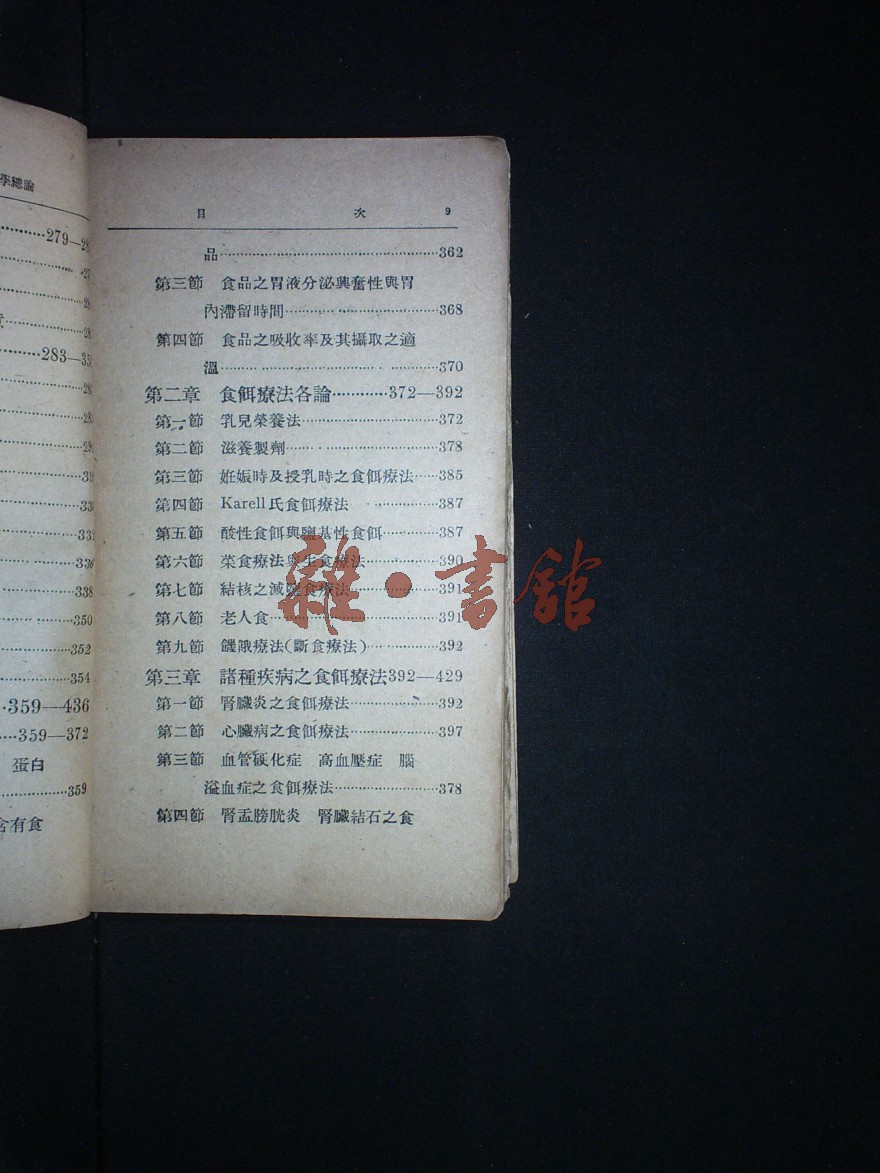 學總論
279—2
283—35
318
330
331
336
338
350
352
354
359—436
359—372
蛋白
359
含有食
目 次 9
品 362
第三節 食品之胃液分泌興奮性與胃
內滯留時間 368
第四節 食品之吸收率及其攝取之適
溫 370
第二章 食餌療法各論 372—392
第一節 乳兒榮養法 372
第二節 滋養製劑 378
第三節 妊娠時及授乳時之食餌療法 385
第四節 Karell氏食餌療法 387
第五節 酸性食餌與鹽基性食餌 387
第六節 菜食療法與生食療法 390
第七節 結核之減鹽食療法 391
第八節 老人食 391
第九節 饑餓療法(斷食療法) 392
第三章 諸種疾病之食餌療法392—429
第一節 腎臟炎之食餌療法 392
第二節 心臟病之食餌療法 397
第三節 血管硬化症 高血壓症 腦
溢血症之食餌療法 378
第四節 腎盂膀胱炎 腎臟結石之食
雜·書館